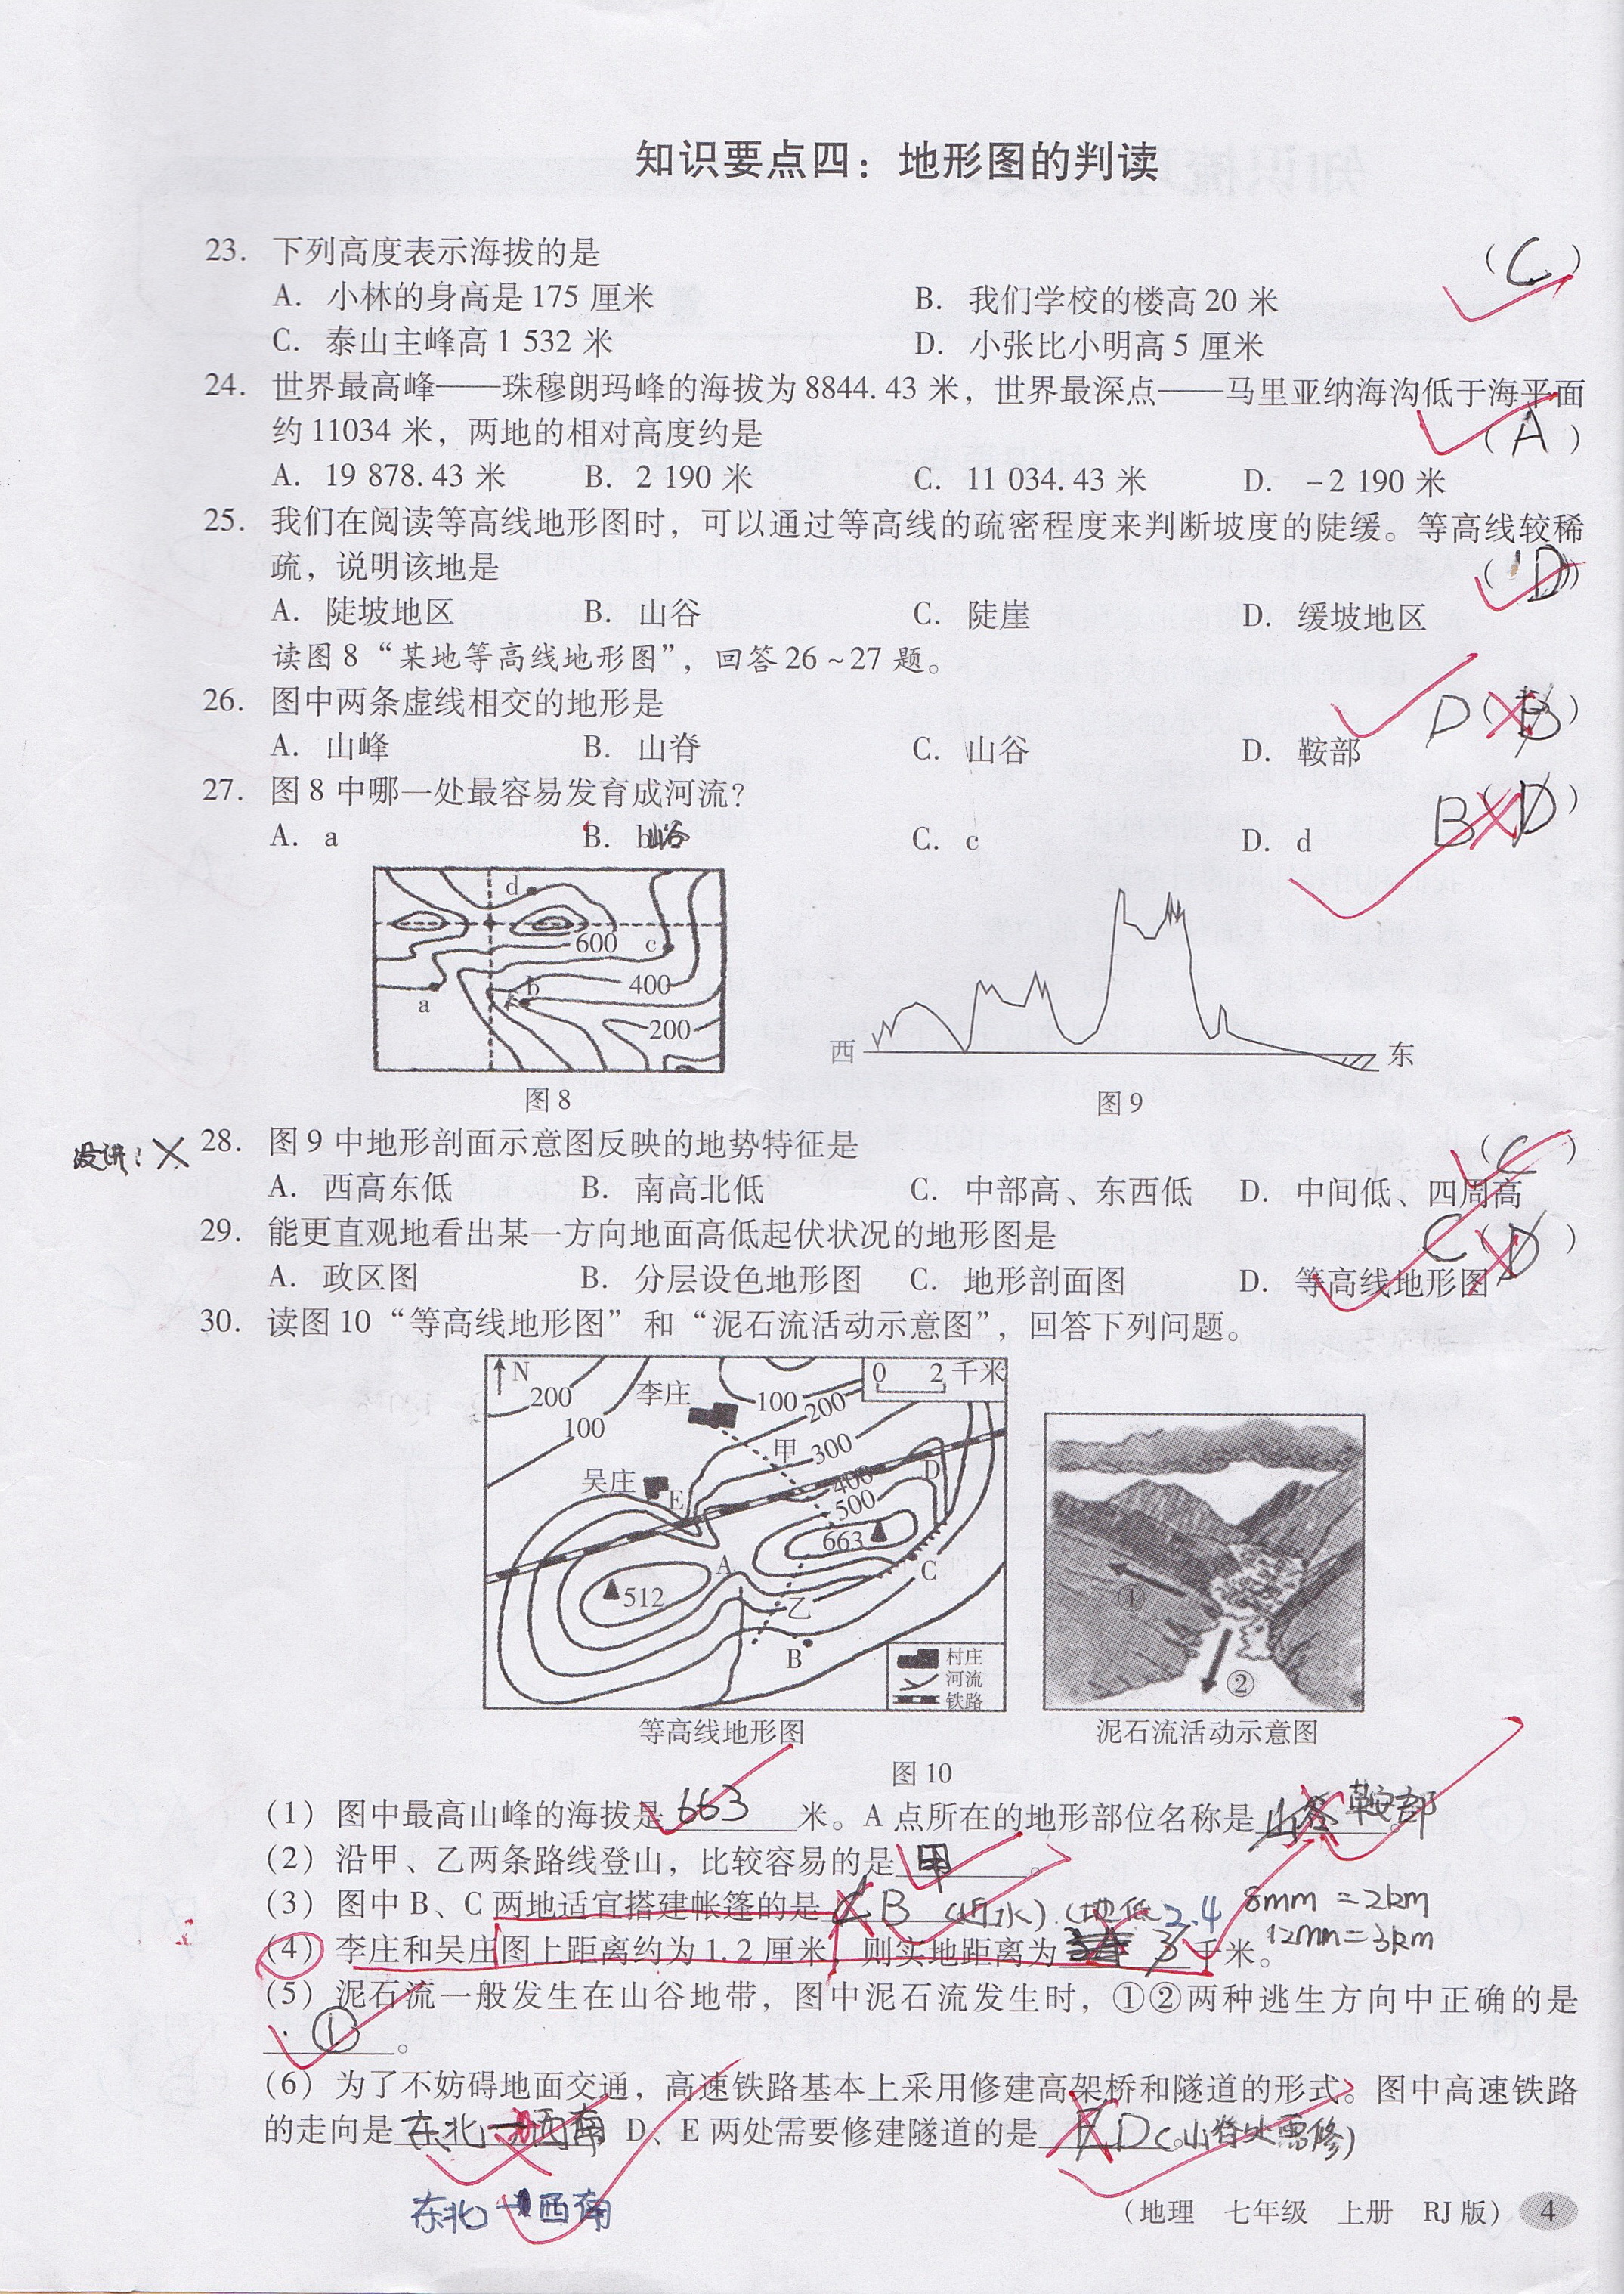 知识要点四：地形图的判读
23. 下列高度表示海拔的是 (C)
A. 小林的身高是 175 厘米 B. 我们学校的楼高 20 米
C. 泰山主峰高 1 532 米 D. 小张比小明高 5 厘米
24. 世界最高峰——珠穆朗玛峰的海拔为 8844.43 米，世界最深点——马里亚纳海沟低于海平面
约 11034 米，两地的相对高度约是 (A)
A. 19 878.43 米 B. 2 190 米 C. 11 034.43 米 D. －2 190 米
25. 我们在阅读等高线地形图时，可以通过等高线的疏密程度来判断坡度的陡缓。等高线较稀
疏，说明该地是 (D)
A. 陡坡地区 B. 山谷 C. 陡崖 D. 缓坡地区
读图 8 “某地等高线地形图”，回答 26～27 题。
26. 图中两条虚线相交的地形是 D (B)
A. 山峰 B. 山脊 C. 山谷 D. 鞍部
27. 图 8 中哪一处最容易发育成河流？ B (D)
A. a B. b 山谷 C. c D. d
d
600 c
400
a b
200
图 8
西 东
图 9
没讲：×
28. 图 9 中地形剖面示意图反映的地势特征是 (C)
A. 西高东低 B. 南高北低 C. 中部高、东西低 D. 中间低、四周高
29. 能更直观地看出某一方向地面高低起伏状况的地形图是 C (D)
A. 政区图 B. 分层设色地形图 C. 地形剖面图 D. 等高线地形图
30. 读图 10 “等高线地形图” 和 “泥石流活动示意图”，回答下列问题。
N 0 2 千米
200 李庄 100 200
100 甲 300
吴庄 E 400 D
500
663
A C
512
乙
B
村庄
河流
铁路
①
②
等高线地形图 泥石流活动示意图
图 10
(1) 图中最高山峰的海拔是 663 米。A 点所在的地形部位名称是 山谷 鞍部。
(2) 沿甲、乙两条路线登山，比较容易的是 甲。
(3) 图中 B、C 两地适宜搭建帐篷的是 C B (近水) (地低 2.4 8mm = 2km
(4) 李庄和吴庄图上距离约为 1.2 厘米，则实地距离为 3 千米。 12mm = 3km
(5) 泥石流一般发生在山谷地带，图中泥石流发生时，①②两种逃生方向中正确的是
①。
(6) 为了不妨碍地面交通，高速铁路基本上采用修建高架桥和隧道的形式。图中高速铁路
的走向是 东北—西南，D、E 两处需要修建隧道的是 E D (山脊处需修)。
东北—西南
(地理 七年级 上册 RJ 版) 4